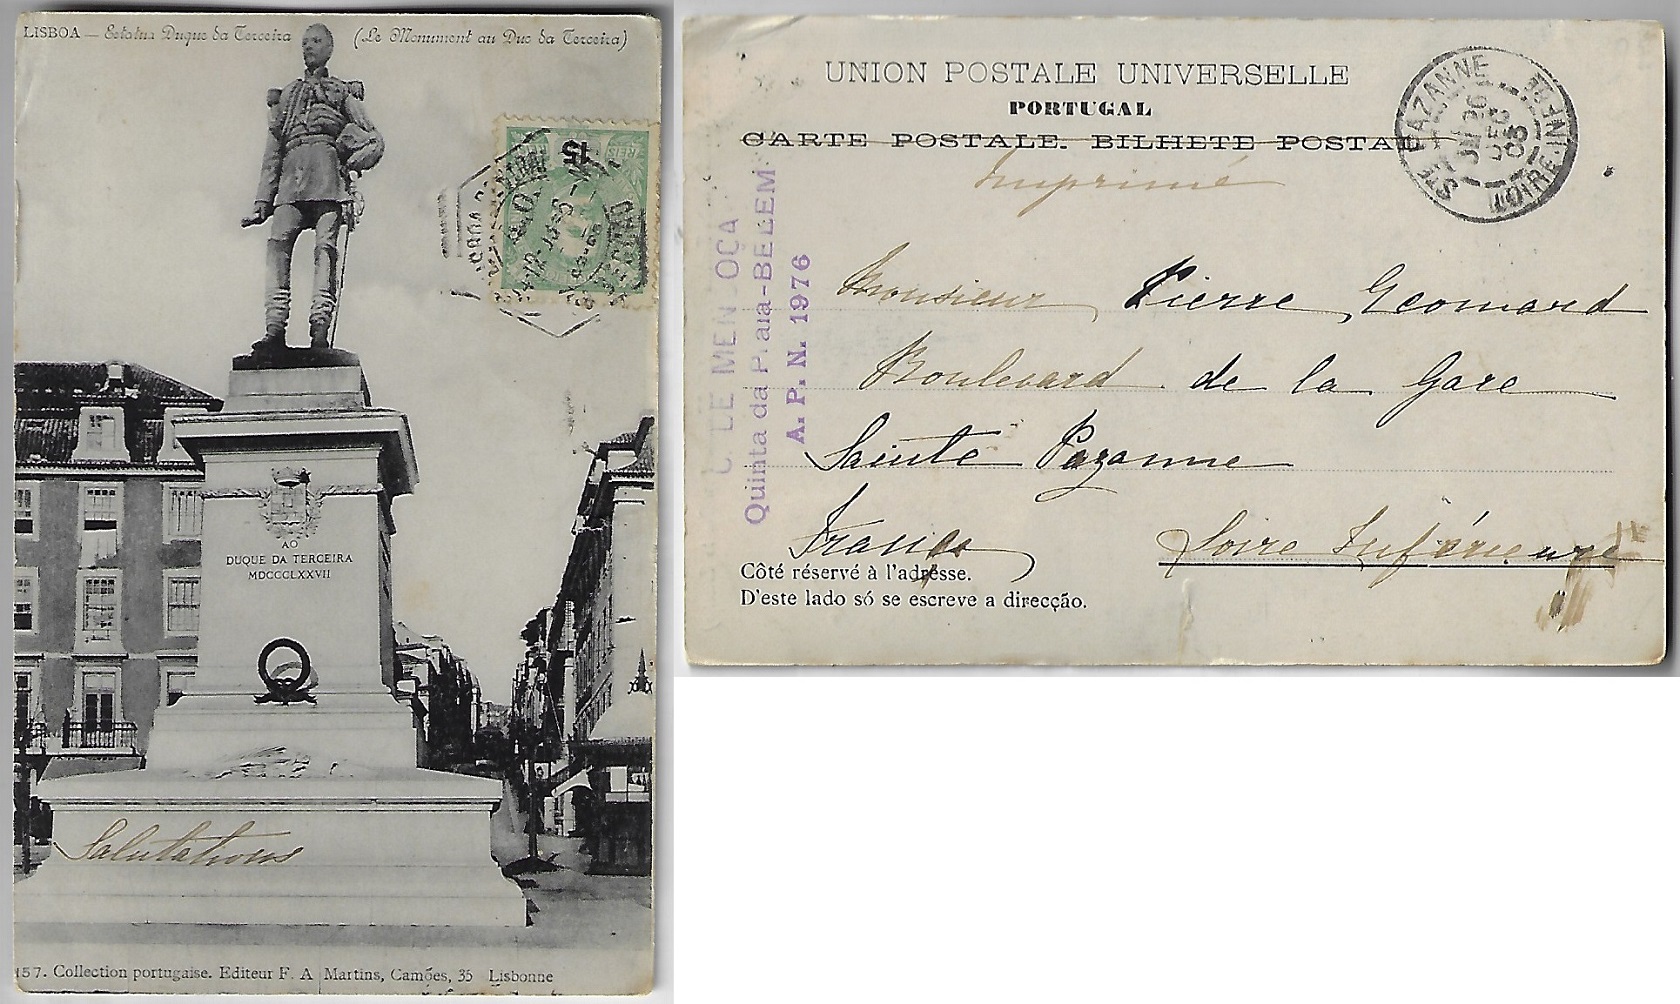 LISBOA — Estatua Duque da Terceira (Le Monument au Duc da Terceira)
15
REIS
AO
DUQUE DA TERCEIRA
MDCCCLXXVII
Salutations
157. Collection portugaise. Editeur F. A Martins, Camões, 35 Lisbonne
UNION POSTALE UNIVERSELLE
PORTUGAL
CARTE POSTALE. BILHETE POSTAL
Imprimé
STE PAZANNE
26
DEC
05
LOIRE-INFRE
DE MENDOÇA
Quinta da Praia-BELEM
A. P. N. 1976
Monsieur Pierre Geomard
Boulevard de la Gare
Sainte Pazanne
France Loire Inférieure
Côté réservé à l'adresse.
D'este lado só se escreve a direcção.